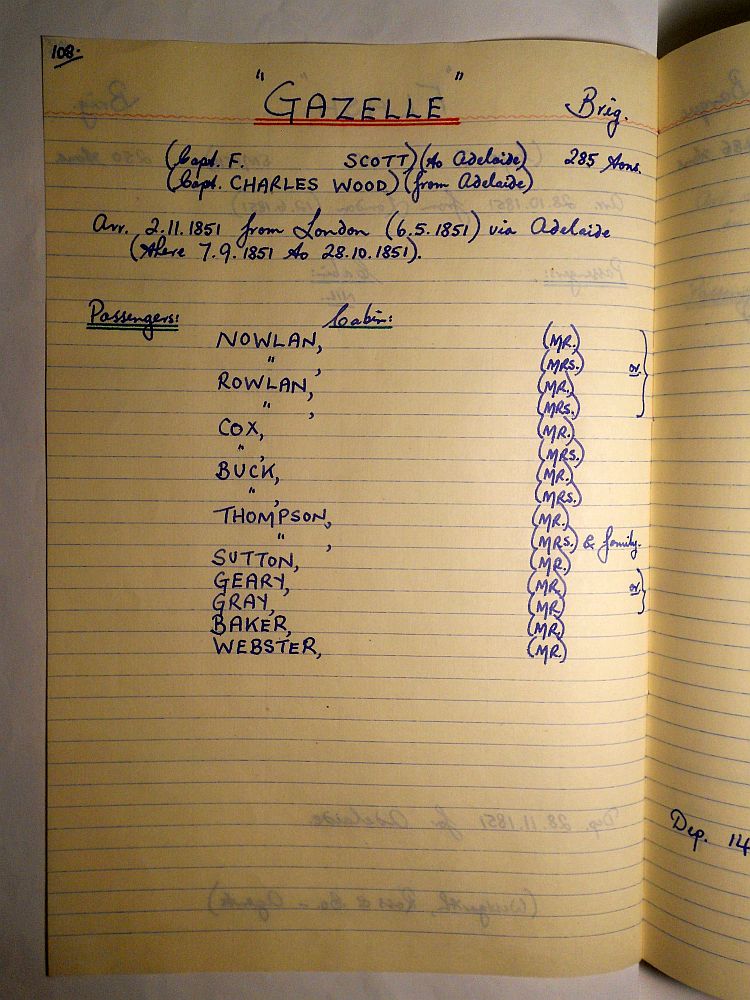 108.
"GAZELLE" Brig.
(Capt. F. SCOTT) (to Adelaide) 285 tons.
(Capt. CHARLES WOOD) (from Adelaide)
Arr. 2.11.1851 from London (6.5.1851) via Adelaide
(there 7.9.1851 to 28.10.1851).
Passengers: Cabin:
NOWLAN, (MR.)
" , (MRS.) or
ROWLAN, (MR.)
" , (MRS.)
COX, (MR.)
" , (MRS.)
BUCK, (MR.)
" , (MRS.)
THOMPSON, (MR.)
" , (MRS.) & family.
SUTTON, (MR.)
GEARY, (MR.) or
GRAY, (MR.)
BAKER, (MR.)
WEBSTER, (MR.)
Dep. 14